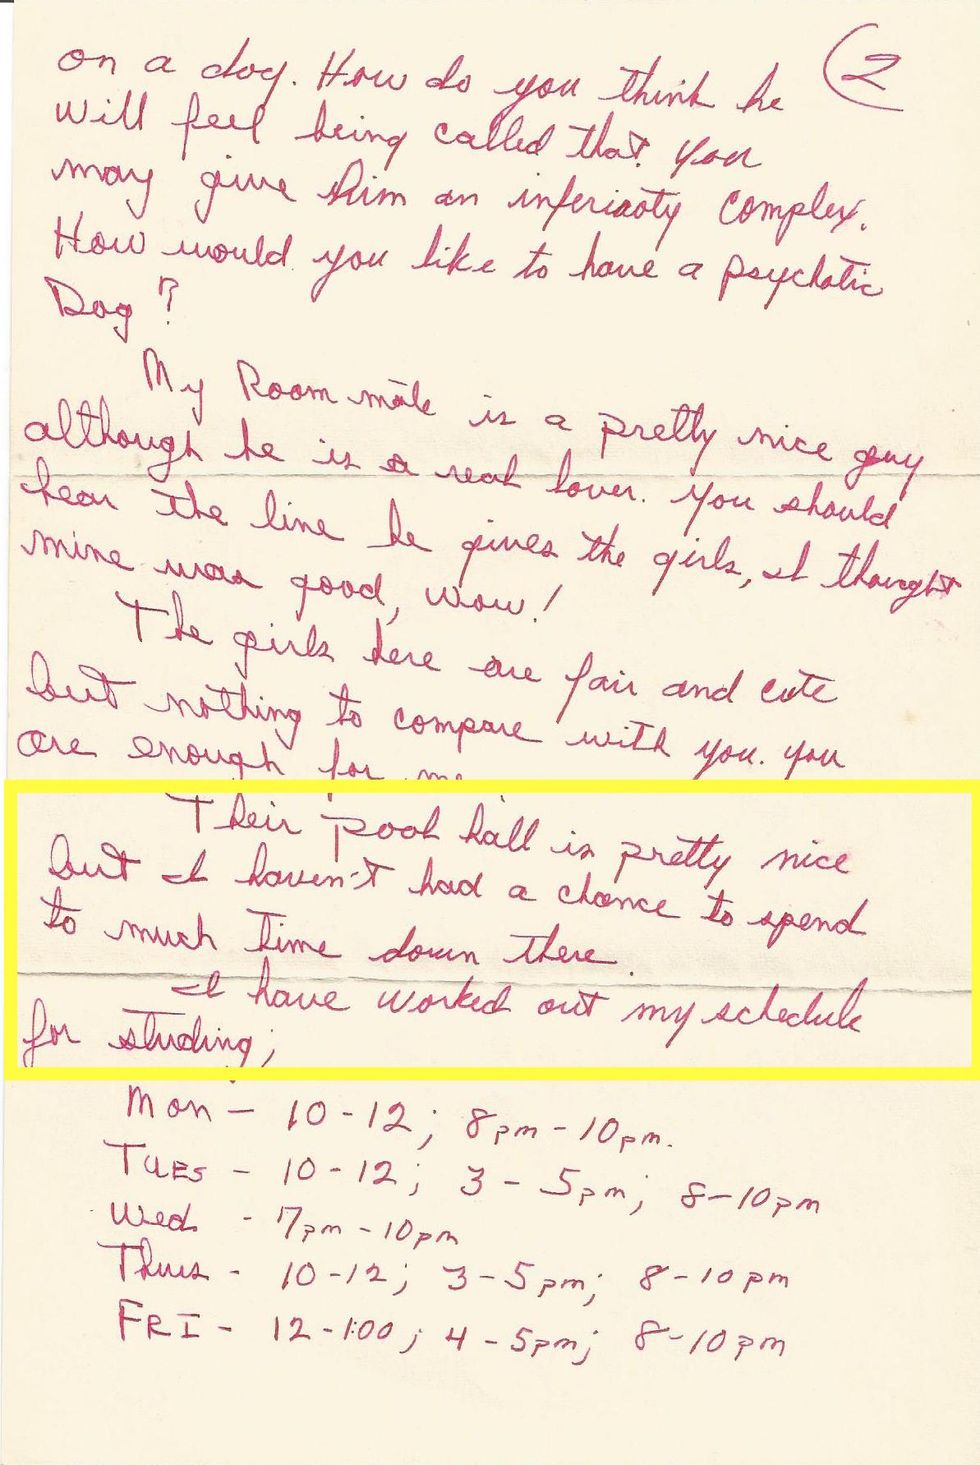 2
on a dog. How do you think he
will feel being called that. You
may give him an inferiaoty complex.
How would you like to have a psychotic
Dog?
My Room mate is a pretty nice guy
although he is a real lover. You should
hear the line he gives the girls, I thought
mine was good, wow!
The girls here are fair and cute
but nothing to compare with you. you
are enough for me
Their pool hall is pretty nice
but I haven't had a chance to spend
to much time down there.
I have worked out my schedule
for studing;
Mon - 10-12; 8pm-10pm.
TUES - 10-12; 3-5pm; 8-10pm
Wed - 7pm-10pm
Thurs - 10-12; 3-5pm; 8-10pm
FRI - 12-1:00; 4-5pm; 8-10pm